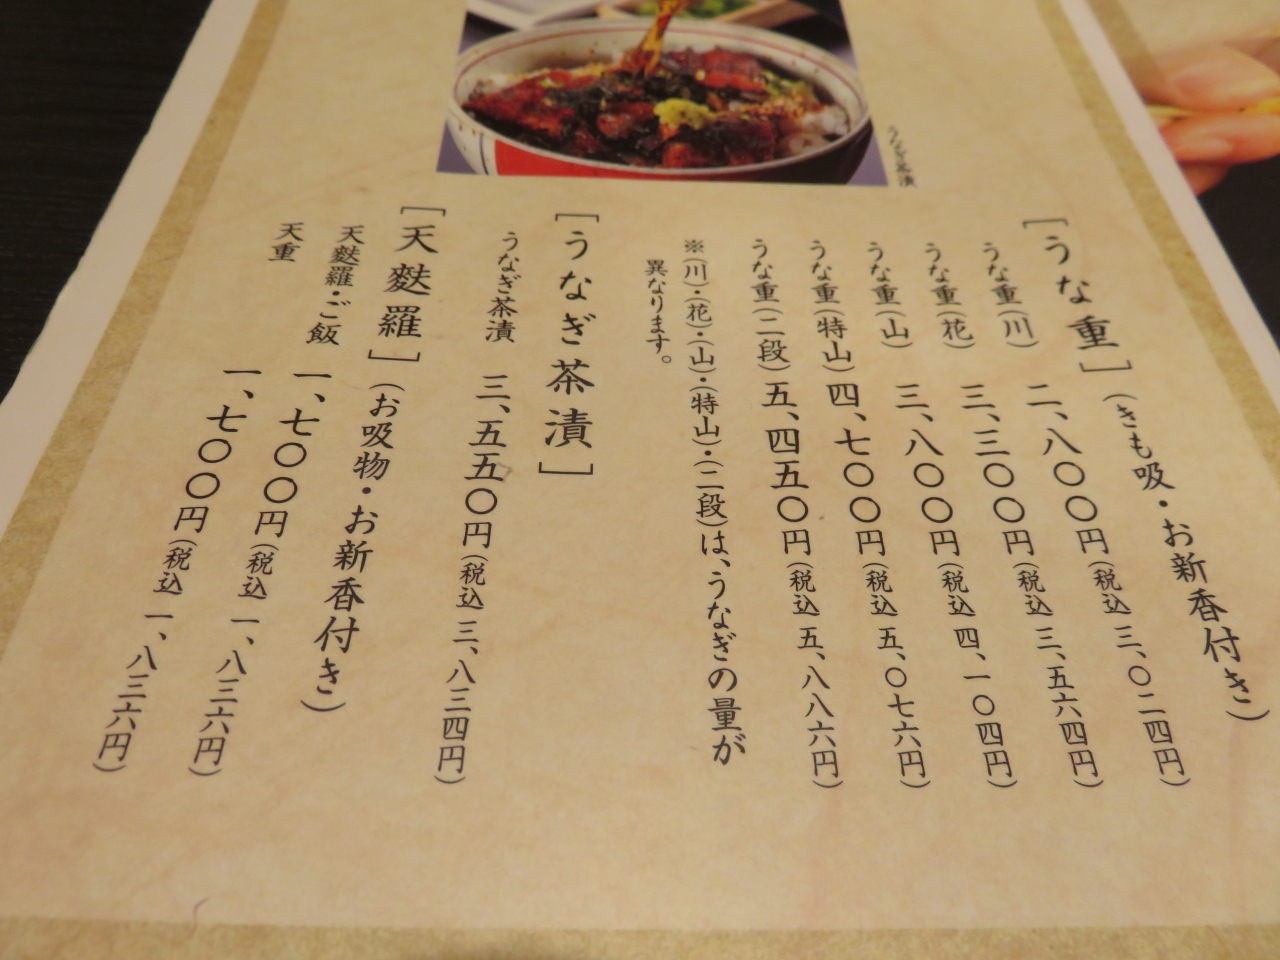 うなぎ茶漬
［うな重］（きも吸・お新香付き）
うな重（川） 二、八〇〇円（税込 三、〇二四円）
うな重（花） 三、三〇〇円（税込 三、五六四円）
うな重（山） 三、八〇〇円（税込 四、一〇四円）
うな重（特山） 四、七〇〇円（税込 五、〇七六円）
うな重（二段） 五、四五〇円（税込 五、八八六円）
※（川）・（花）・（山）・（特山）・（二段）は、うなぎの量が
異なります。
［うなぎ茶漬］
うなぎ茶漬 三、五五〇円（税込 三、八三四円）
［天麩羅］（お吸物・お新香付き）
天麩羅・ご飯 一、七〇〇円（税込 一、八三六円）
天重 一、七〇〇円（税込 一、八三六円）